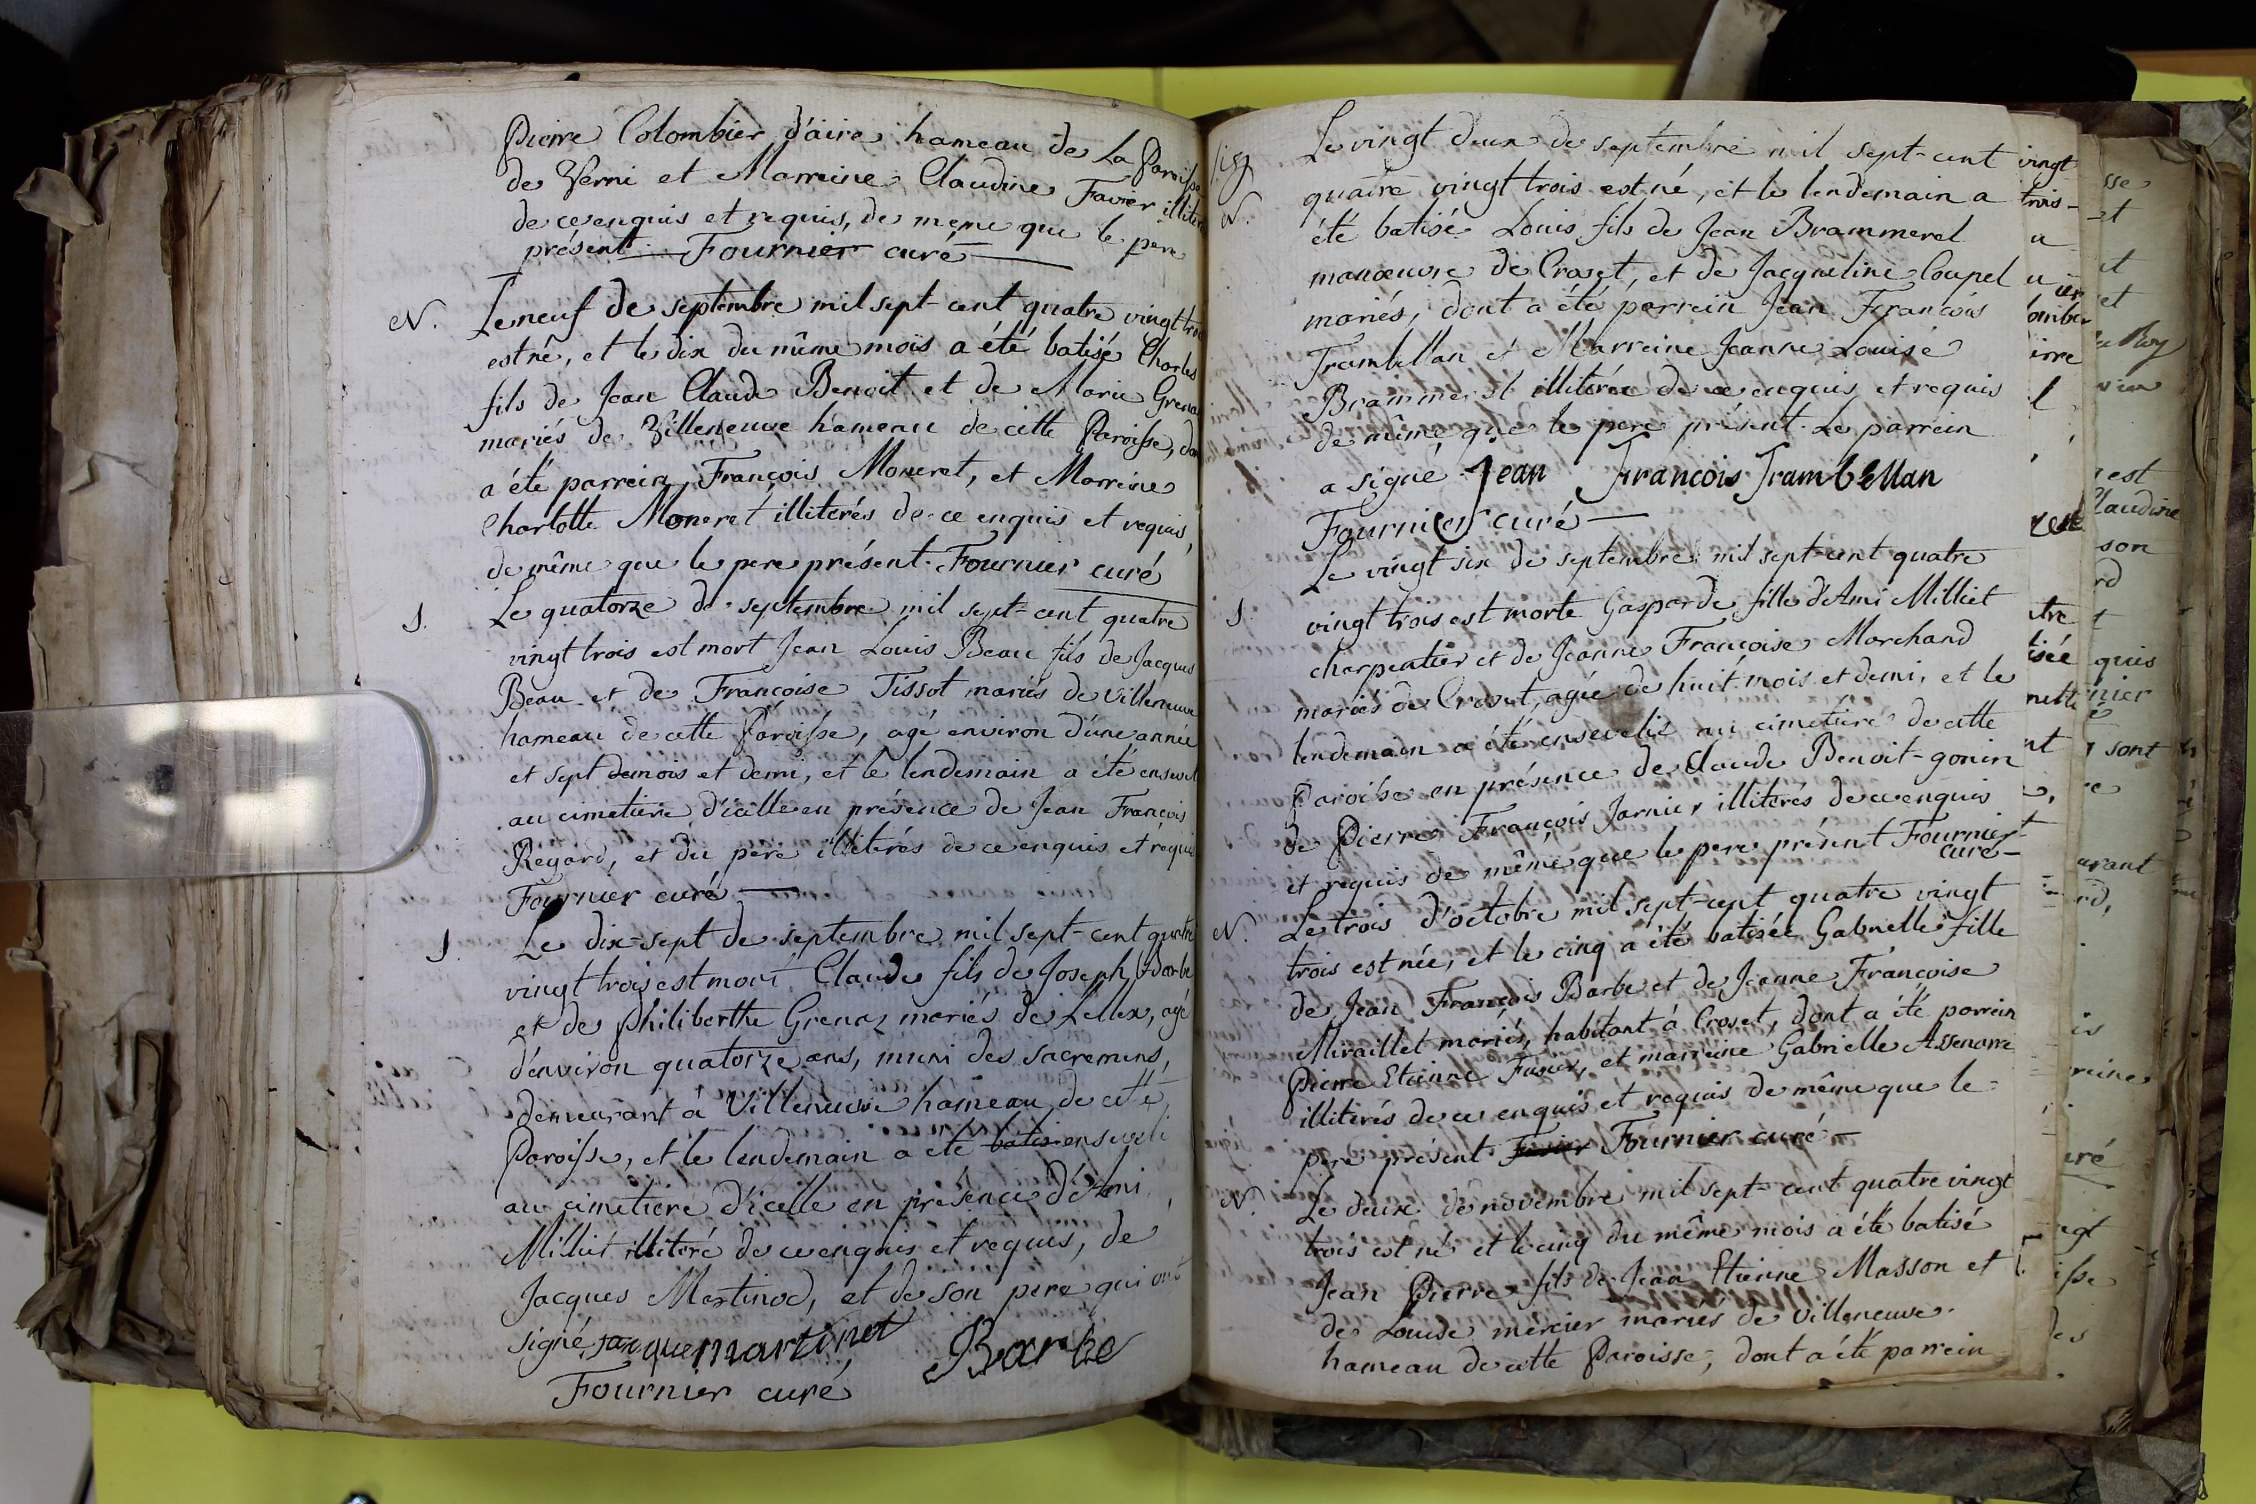 Pierre Colombier d'aire hameau de La Paroisse
de Verni et Marreine Claudine Favier illiter
de ce enquis et requis, de meme que le pere
présent. Fournier curé
N. Le neuf de septembre mil sept-cent quatre vingt trois
est né, et le dix du même mois a été batisé Charles
fils de Jean Claude Benoit et de Marie Grena
mariés de Villeneuve hameau de cette Paroisse, dont
a été parrein François Moneret, et Marreine
Charlotte Moneret illiterés de ce enquis et requis,
de même que le pere présent. Fournier curé
S. Le quatorze de septembre mil sept-cent quatre
vingt trois est mort Jean Louis Beau fils de Jacques
Beau et de Françoise Tissot mariés de Villeneuve
hameau de cette Paroisse, agé environ d'une année
et sept demois et demi, et le lendemain a été enseveli
au cimetiere d'icelle en présence de Jean François
Regard, et du pere illiterés de ce enquis et requis
Fournier curé
S. Le dix-sept de septembre mil sept-cent quatre
vingt trois est mort Claude fils de Joseph Barbe
et de Philiberthe Grenaz mariés de Lellex, agé
d'environ quatorze ans, muni des sacremens,
demeurant à Villeneuve hameau de cette
Paroisse, et le lendemain a été batisé enseveli
au cimetiere d'icelle en présence d'Ami
Milliet illiteré de ce enquis et requis, de
Jacques Martinod, et de son pere qui ont
signé jacque martinet Barbe
Fournier curé
Le vingt deux de septembre mil sept-cent
N. quatre vingt trois est né, et le lendemain a
été batisé Louis fils de Jean Brammerel
manœuvre de Croset, et de Jacqueline Coupel
mariés, dont a été parrein Jean François
Trambellan et Marreine Jeanne Louise
Brammerel illiterée de ce enquis et requis
de même que le pere présent. Le parrein
a signé Jean François Trambellan
Fournier curé
Le vingt six de septembre mil sept-cent quatre
S. vingt trois est morte Gasparde fille d'Ami Milliet
charpentier et de Jeanne Françoise Marchand
mariés de Croset, agée de huit mois et demi, et le
lendemain a été ensevelie au cimetiere de cette
Paroisse en présence de Claude Benoit-gonin
de Pierre François Jarnier illiterés de ce enquis
et requis de même que le pere présent Fournier
curé
N. Le trois d'octobre mil sept-cent quatre vingt
trois est née, et le cinq a été batisée Gabrielle fille
de Jean François Barbe et de Jeanne Françoise
Miraillet mariés, habitant à Croset, dont a été parrein
Pierre Etienne Favier, et marreine Gabrielle Assenarre
illiterés de ce enquis et requis de même que le
pere présent Favier Fournier curé
N. Le deux de novembre mil sept-cent quatre vingt
trois est né et le cinq du même mois a été batisé
Jean Pierre fils de Jean Etienne Masson et
de Louise mercier mariés de Villeneuve
hameau de cette Paroisse, dont a été parrein